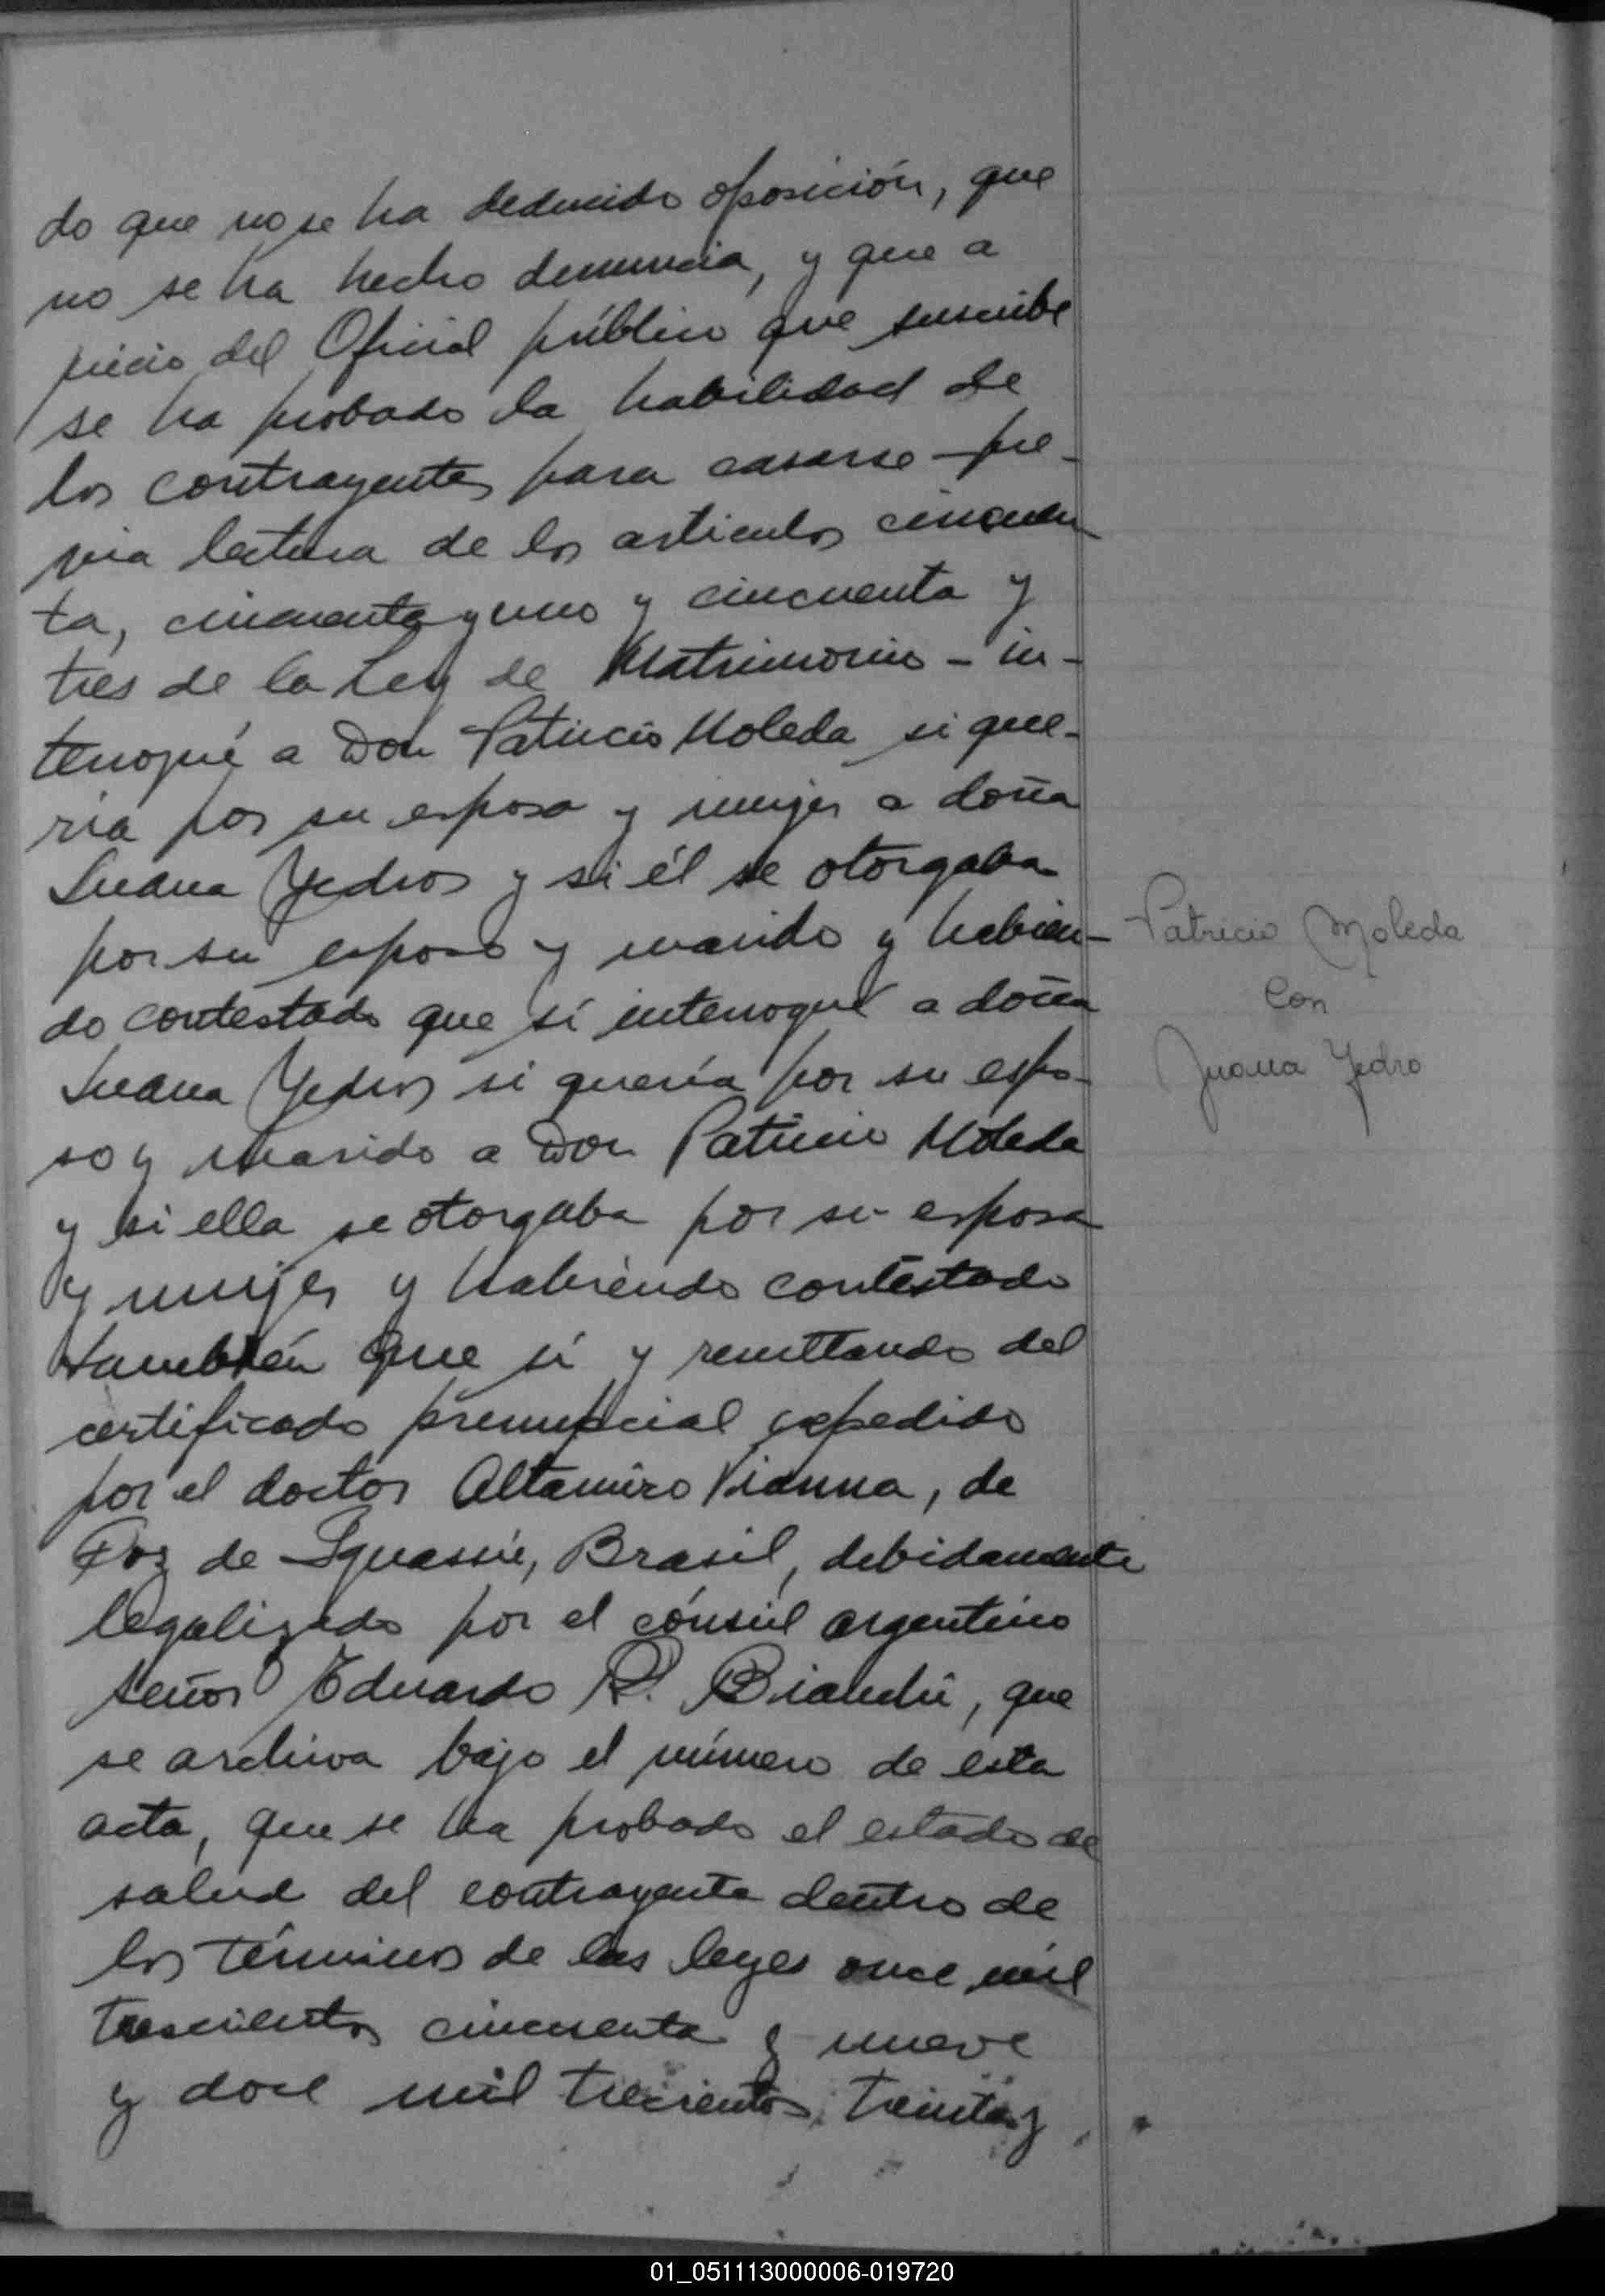 do que no se ha deducido oposición, que
no se ha hecho denuncia, y que a
juicio del Oficial público que suscribe
se ha probado la habilidad de
los contrayentes para casarse – pre-
via lectura de los artículos cincuen
ta, cincuenta y uno y cincuenta y
tres de la Ley de Matrimonio – in-
terrogué a Don Patricio Moleda si que-
ría por su esposa y mujer a doña
Juana Yedros y si él se otorgaba
por su esposo y marido y habien-
do contestado que sí interrogué a doña
Juana Yedros si quería por su espo-
so y marido a Don Patricio Moleda
y si ella se otorgaba por su esposa
y mujer y habiendo contestado
también que sí y resultando del
certificado prenupcial expedido
por el doctor Altamiro Vianna, de
Foz de Iguassú, Brasil, debidamente
legalizado por el cónsul argentino
señor Eduardo R. Bianchi, que
se archiva bajo el número de esta
acta, que se ha probado el estado de
salud del contrayente dentro de
los términos de las leyes once mil
trescientos cincuenta y nueve
y doce mil trecientos treinta y
Patricio Moleda
con
Juana Yedro
01_051113000006-019720